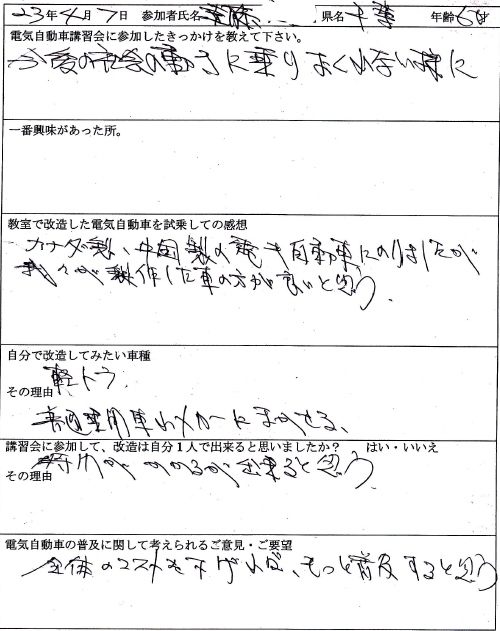 23年4月7日 参加者氏名 県名 千葉 年齢
電気自動車講習会に参加したきっかけを教えて下さい。
今後の社会の動きに乗りおくれない様に
一番興味があった所。
教室で改造した電気自動車を試乗しての感想
カナダ製、中国製の電気自動車にのりましたが
我々が製作した車の方が良いと思う。
自分で改造してみたい車種
軽トラ
その理由
乗用車はメーカーにまかせる、
講習会に参加して、改造は自分1人で出来ると思いましたか? はい・いいえ
時間がかかるが出来ると思う。
その理由
電気自動車の普及に関して考えられるご意見・ご要望
全体のコストを下げれば、もっと普及すると思う